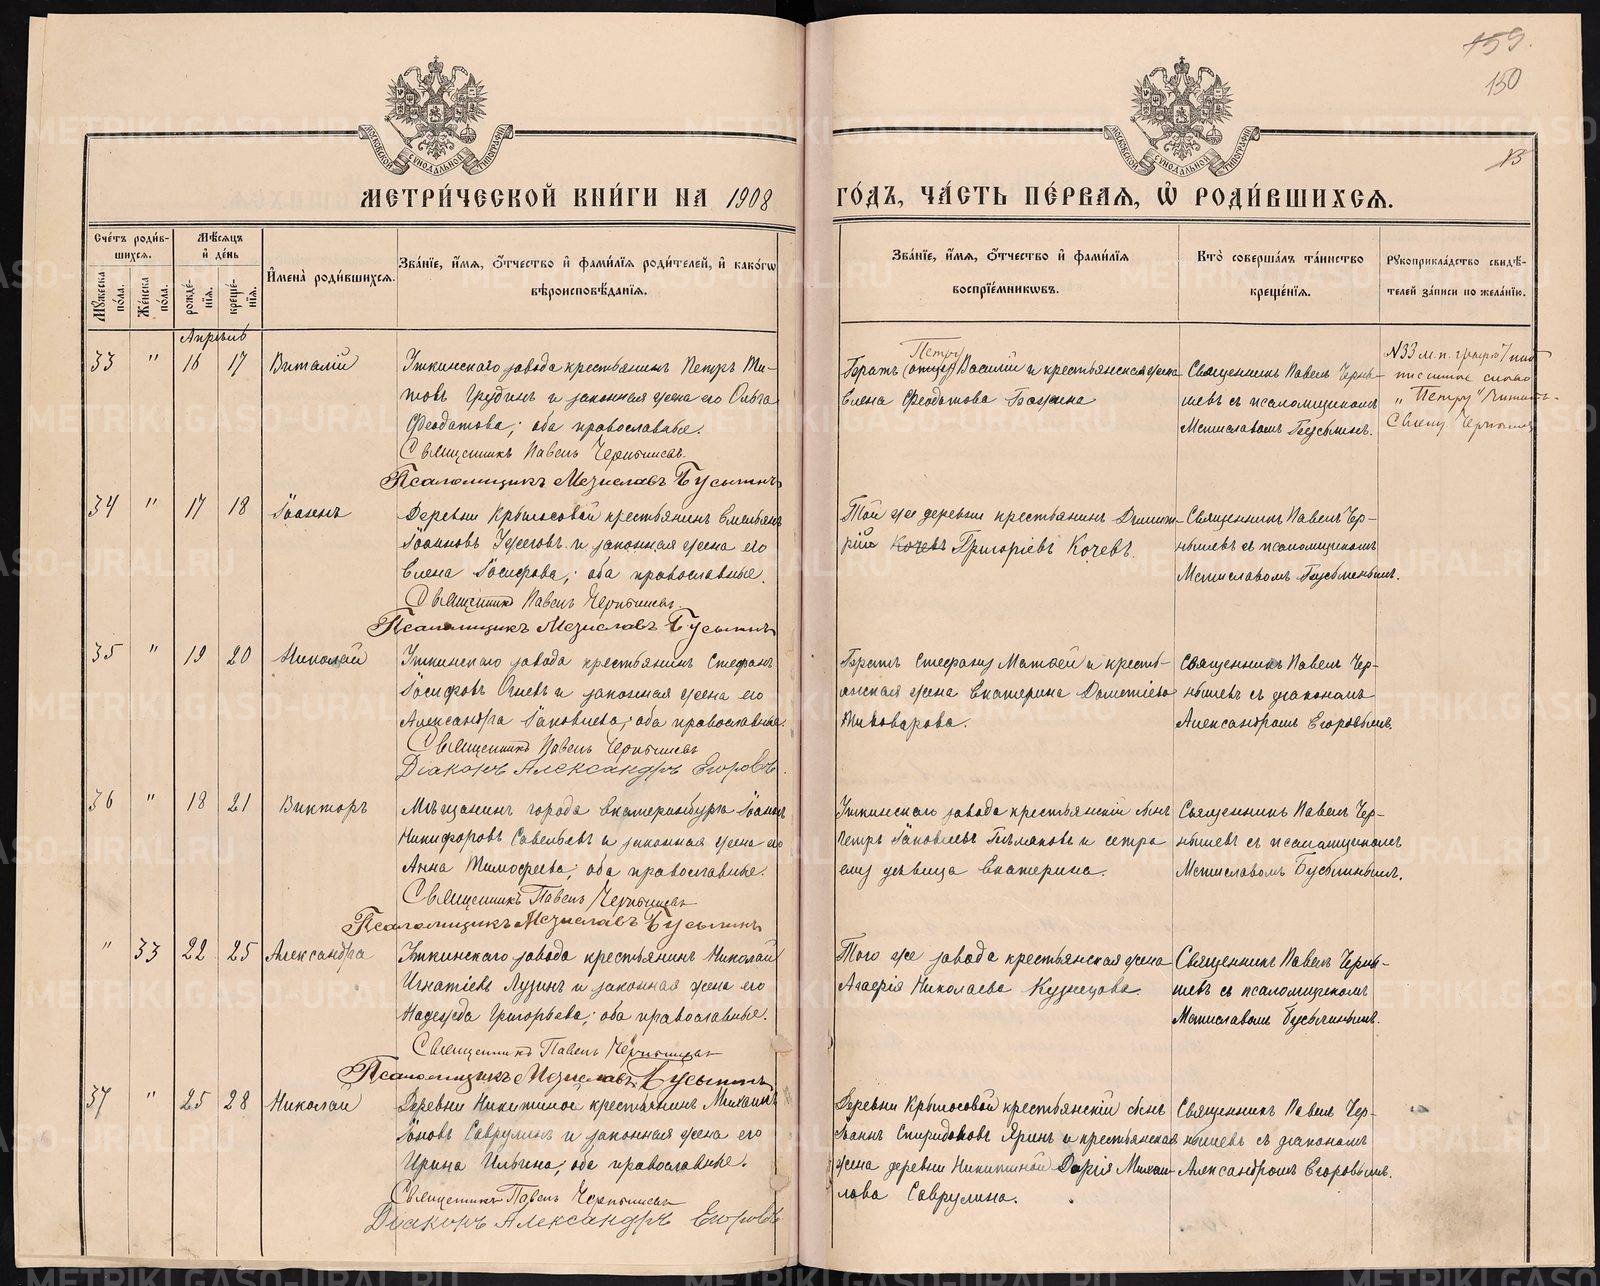 159.
150
МОСКОВСКОЙ СѴНОДАЛЬНОЙ ТИПОГРАФІИ
МОСКОВСКОЙ СѴНОДАЛЬНОЙ ТИПОГРАФІИ
МЕТРИ́ЧЕСКОЙ КНИ́ГИ НА 1908
ГО́ДЪ, ЧА́СТЬ ПЕ́РВАЯ, Ѽ РОДИ́ВШИХСѦ.
Сче́тъ роди́вшихсѧ.
Мѣ́сѧцъ и҆ де́нь
Мꙋ́жеска по́ла.
Же́нска по́ла.
рожде́нїѧ.
креще́нїѧ.
И҆мена̀ роди́вшихсѧ.
Зва́нїе, и҆́мѧ, ѻ҆́тчество и҆ фами́лїѧ роди́телей, и҆ како́гѡ
вѣроисповѣ́данїѧ.
Зва́нїе, и҆́мѧ, ѻ҆́тчество и҆ фами́лїѧ
воспрїе́мникѡвъ.
Кто̀ соверша́лъ та́инство
креще́нїѧ.
Рꙋкоприкла́дство свидѣ́-
телей за́писи по жела́нїю.
Апрѣль
33 " 16 17 Виталій
Уткинскаго завода крестьянинъ Петръ Ти-
товъ Грубинъ и законная жена его Ольга
Феодатова; оба православные.
Священникъ Павелъ Чернышевъ
Псаломщикъ Мстиславъ Бусыгинъ
Петру
Братъ (отцу) Василій и крестьянская жена
Елена Феодотова
Священникъ Павелъ Черны-
шевъ съ псаломщикомъ
Мстиславомъ
N33 м.п. графою над
писанное слово
"Петру" читать.
Свящ Чернышевъ
34 " 17 18 Іоаннъ
Деревни Крылосовой крестьянинъ Емельянъ
Іоанновъ и законная жена его
Елена Іосифова; оба православные.
Священникъ Павелъ Чернышевъ
Псаломщикъ Мстиславъ Бусыгинъ
Той же деревни крестьянинъ Димит-
рій Кочевъ Григоріевъ Кочевъ.
Священникъ Павелъ Чер-
нышевъ съ псаломщикомъ
Мстиславомъ
35 " 19 20 Николай
Уткинскаго завода крестьянинъ Стефанъ
Іосифовъ Огневъ и законная жена его
Александра Іаковлева; оба православные.
Священникъ Павелъ Чернышевъ
Діаконъ Александръ Егоровъ.
Братъ Стефану Матвей и кресть-
янская жена Екатерина Дометіева
Пивоварова.
Священникъ Павелъ Чер-
нышевъ съ діакономъ
Александромъ Егоровымъ.
36 " 18 21 Викторъ
Мѣщанинъ города Екатеринбурга Іоаннъ
Никифоровъ Савельевъ и законная жена его
Анна Тимофеева; оба православные.
Священникъ Павелъ Чернышевъ
Псаломщикъ Мстиславъ Бусыгинъ
Уткинскаго завода крестьянскій сынъ
Петръ Іаковлевъ и сестра
ему дѣвица Екатерина.
Священникъ Павелъ Чер-
нышевъ съ псаломщикомъ
Мстиславомъ Бусыгинымъ.
" 33 22 25 Александра
Уткинскаго завода крестьянинъ Николай
Игнатіевъ Лузинъ и законная жена его
Надежда Григорьева; оба православные.
Священникъ Павелъ Чернышевъ
Псаломщикъ Мстиславъ Бусыгинъ
Того же завода крестьянская жена
Агафія Николаева Кузнецова.
Священникъ Павелъ Черны-
шевъ съ псаломщикомъ
Мстиславомъ Бусыгинымъ.
37 " 25 28 Николай
Деревни Никитиной крестьянинъ Михаилъ
Іоновъ Саврулинъ и законная жена его
Ирина Ильина; оба православные.
Священникъ Павелъ Чернышевъ
Діаконъ Александръ Егоровъ
Деревни Крылосовой крестьянскій сынъ
Іоаннъ Спиридоновъ Яринъ и крестьянская
жена деревни Никитиной Дарія Михаи-
лова Саврулина.
Священникъ Павелъ Чер-
нышевъ съ діакономъ
Александромъ Егоровымъ.
METRIKI.GASO-URAL.RU